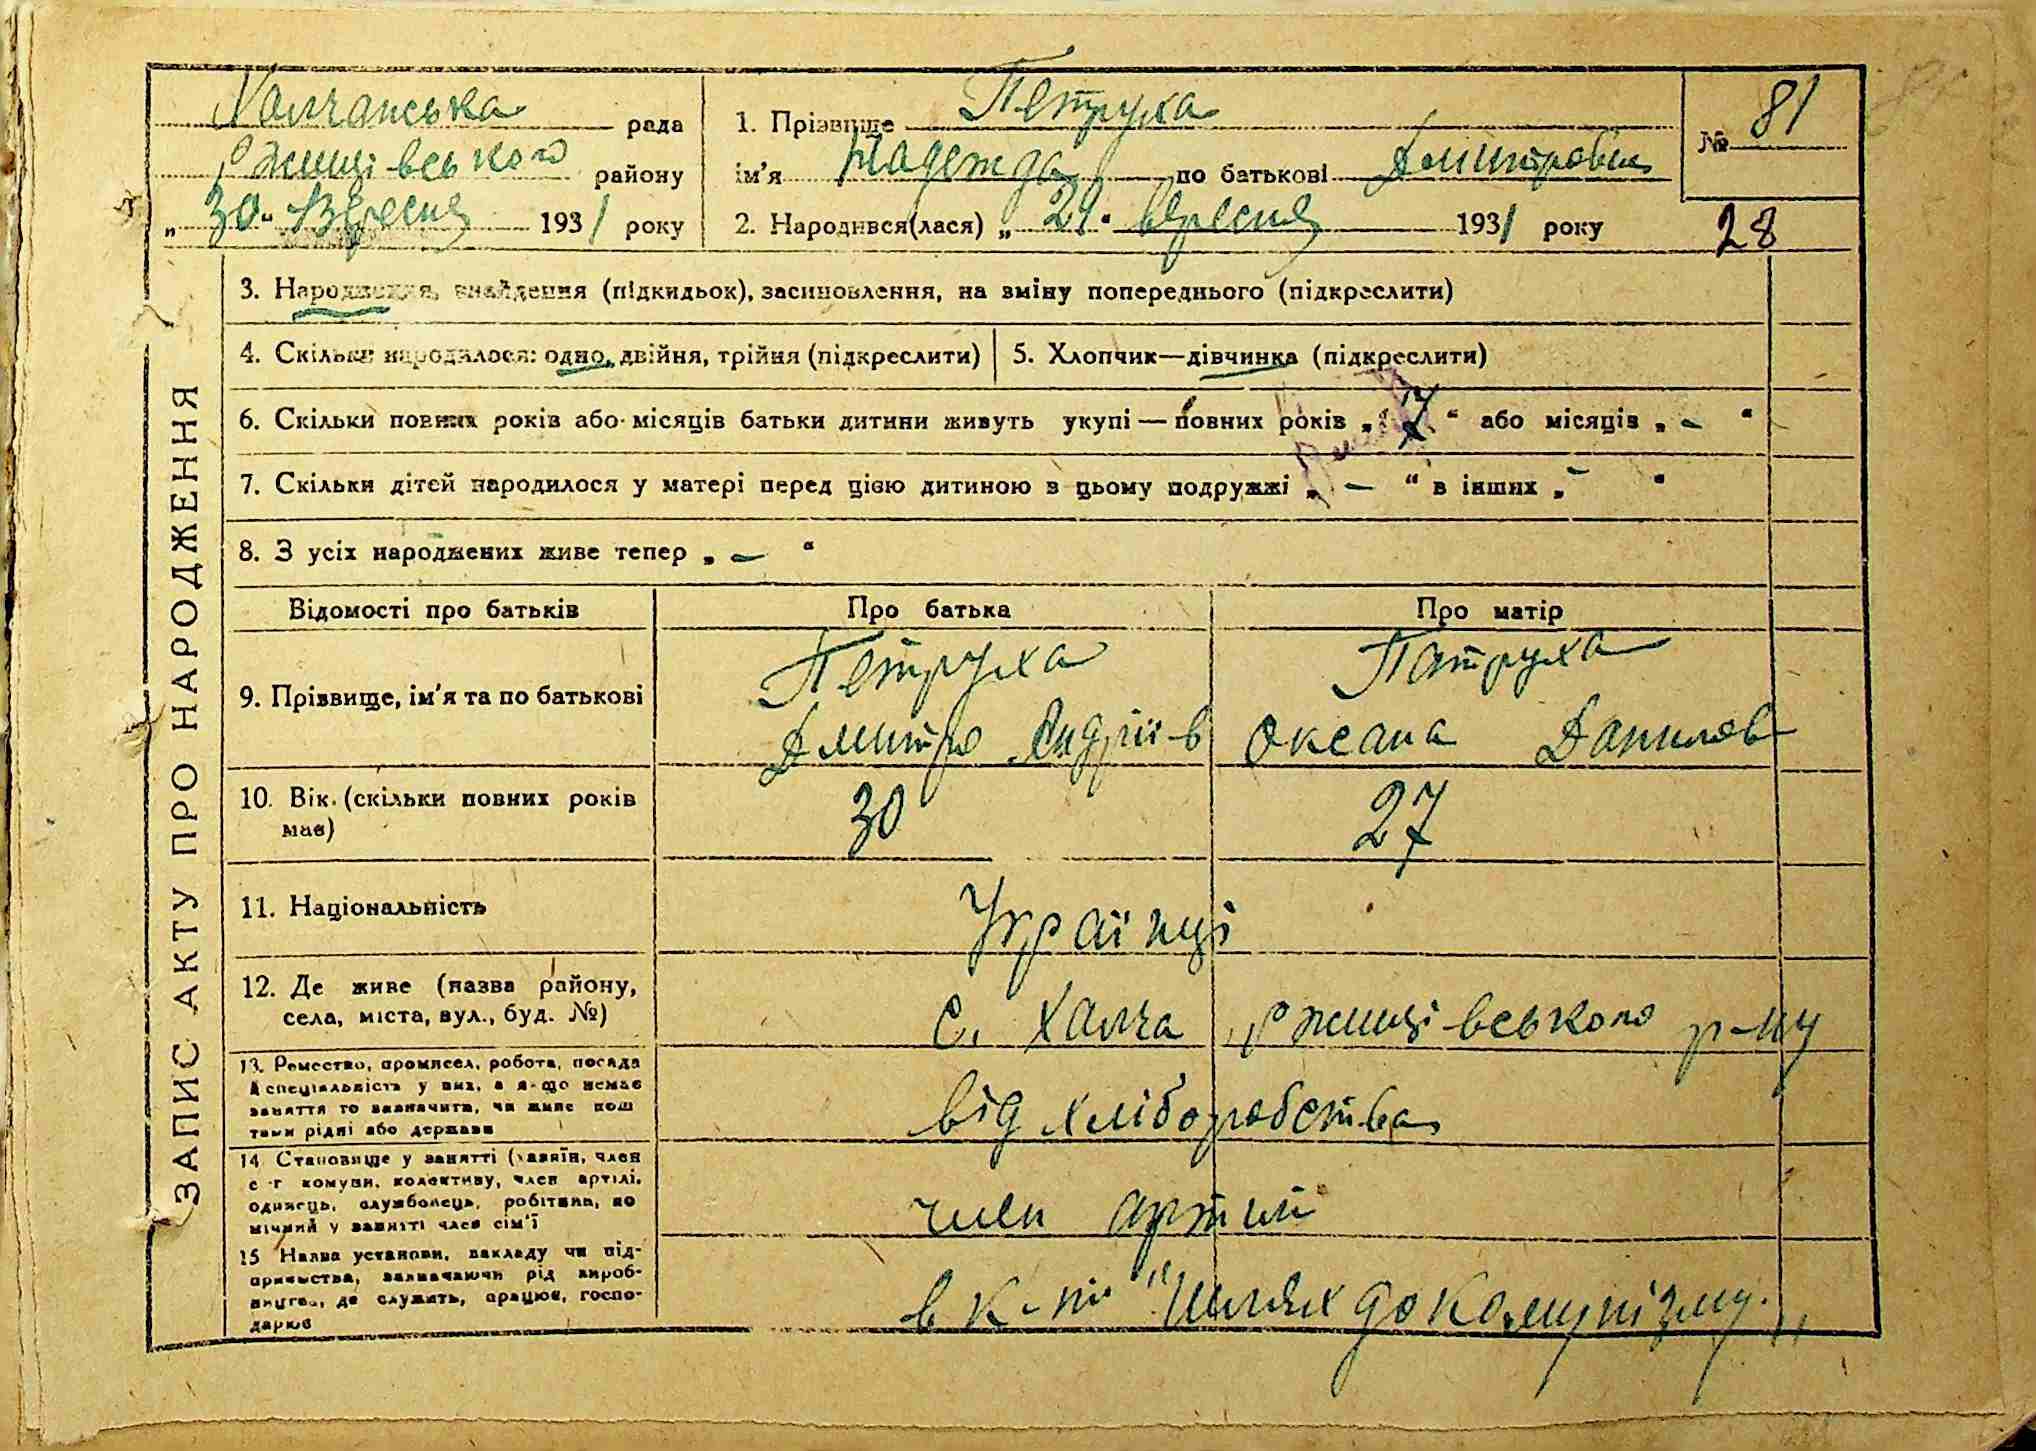 Халчанська рада
Ржищівського району
„30“ Вересня 1931 року
1. Прізвище Петруха
ім'я Надежда по батькові Дмитровна
2. Народився(лася) „29“ вересня 1931 року
№ 81
28
ЗАПИС АКТУ ПРО НАРОДЖЕННЯ
3. Народження, знайдення (підкидьок), засиновлення, на зміну попереднього (підкреслити)
4. Скільки народилося: одно, двійня, трійня (підкреслити)
5. Хлопчик—дівчинка (підкреслити)
6. Скільки повних років або місяців батьки дитини живуть укупі — повних років „7“ або місяців „–“
7. Скільки дітей народилося у матері перед цією дитиною в цьому подружжі „–“ в інших „–“
8. З усіх народжених живе тепер „–“
Відомості про батьків Про батька Про матір
9. Прізвище, ім'я та по батькові
Петруха
Дмитро Андріїв
Петруха
Оксана Данилов
10. Вік (скільки повних років
має)
30 27
11. Національність Українці
12. Де живе (назва району,
села, міста, вул., буд. №)
с. Халча Ржищівського р-ну
13. Ремество, промисел, робота, посада
й спеціяльність у них, а якщо немає
заняття то зазначити, чи живе кош
тами рідні або держави
від хліборобства
14 Становище у занятті (хазяїн, член
с-г комуни, колективу, член артілі,
одинець, службовець, робітник, по
мічний у занятті член сім'ї
член артілі
15 Назва установи, закладу чи під-
приємства, зазначаючи рід вироб-
ництва, де служить, працює, госпо-
дарює
в к-пі "Шлях до комунізму"